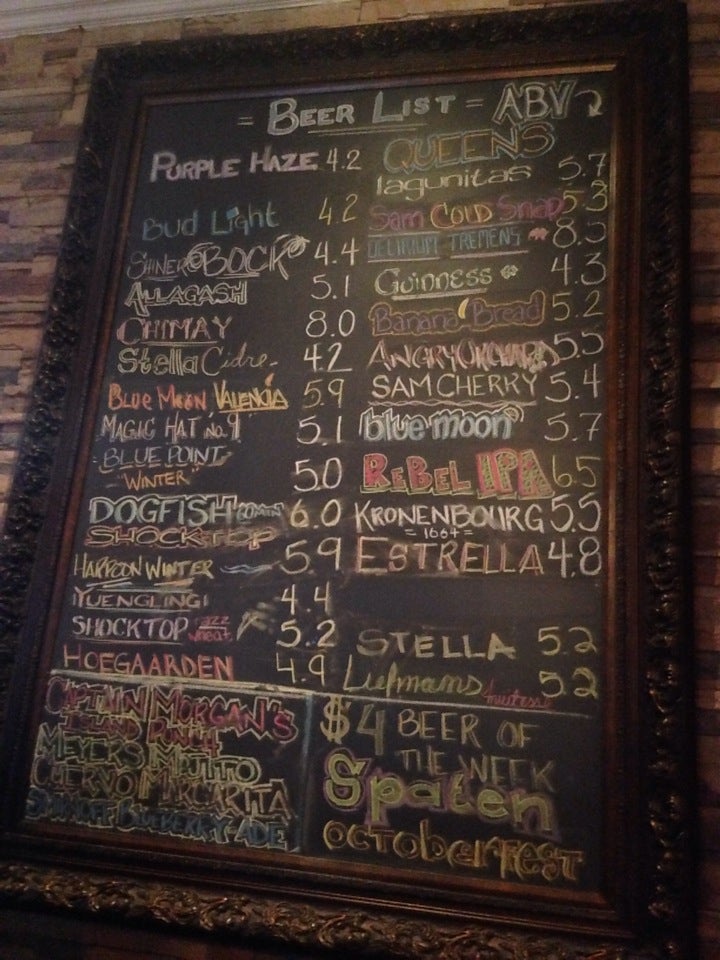 = BEER LIST = ABV
PURPLE HAZE 4.2
Bud Light 4.2
SHINER BOCK 4.4
ALLAGASH 5.1
CHIMAY 8.0
Stella Cidre 4.2
BLUE MOON VALENCIA 5.9
MAGIC HAT no. 9 5.1
BLUE POINT
"WINTER" 5.0
DOGFISH 6.0
SHOCKTOP
HARPOON WINTER 5.9
YUENGLING 4.4
SHOCKTOP 5.2
HOEGAARDEN 4.9
QUEENS
lagunitas 5.7
Sam COLD Snap 5.3
DELIRIUM TREMENS 8.5
GUINNESS 4.3
Banana Bread 5.2
ANGRY ORCHARD 5.5
SAM CHERRY 5.4
blue moon 5.7
REBEL IPA 6.5
KRONENBOURG 5.5
= 1664 =
ESTRELLA 4.8
STELLA 5.2
Liefmans fruitesse 5.2
CAPTAIN MORGAN'S
ISLAND PUNCH
MEYERS MOJITO
CUERVO MARGARITA
SMIRNOFF BLUEBERRY-ADE
$4 BEER OF
THE WEEK
Spaten
OCTOberfEST